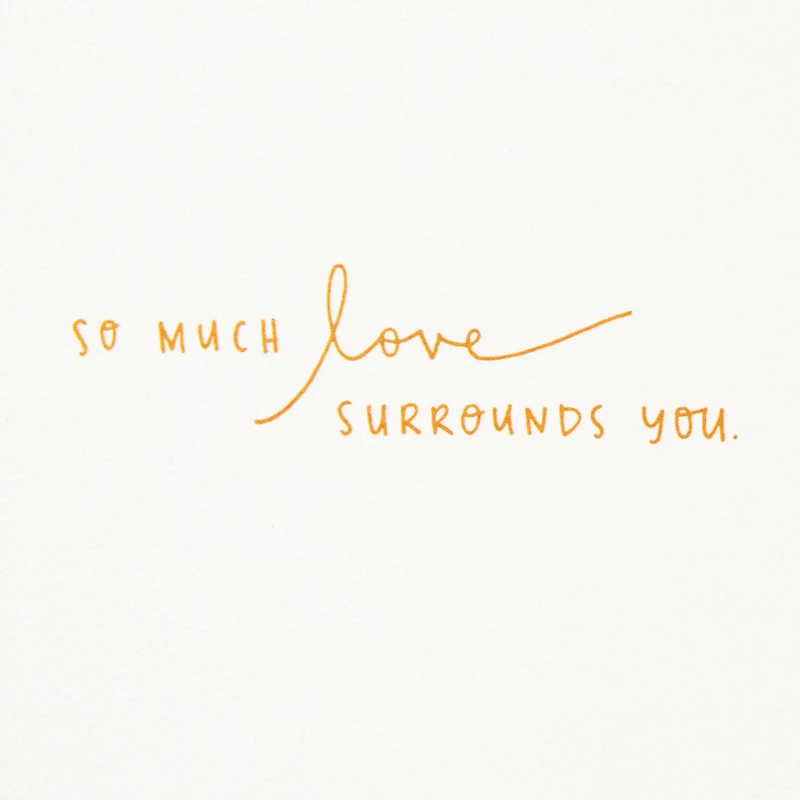 SO MUCH love
SURROUNDS YOU.